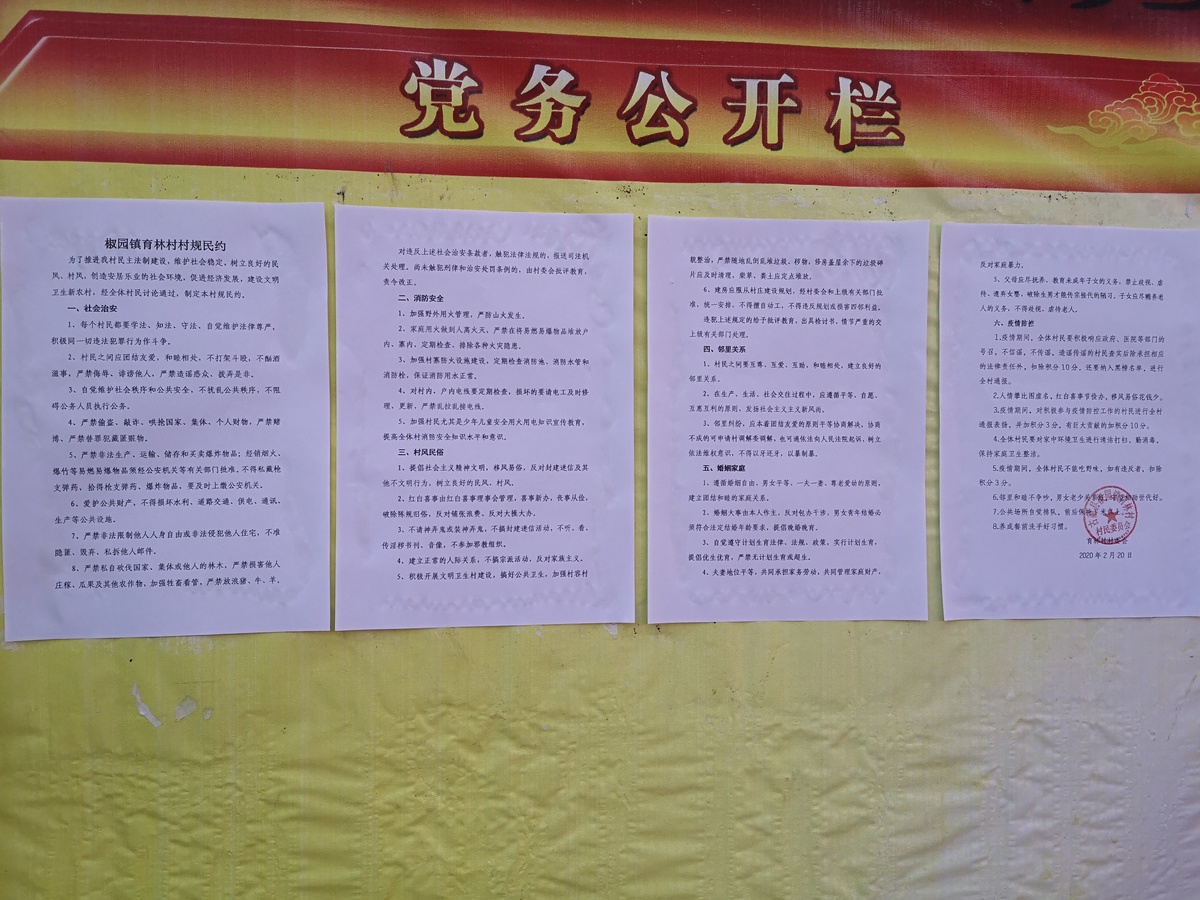 党务公开栏
椒园镇育林村村规民约
为了推进我村民主法制建设，维护社会稳定，树立良好的民
风、村风，创造安居乐业的社会环境，促进经济发展，建设文明
卫生新农村，经全体村民讨论通过，制定本村规民约。
一、社会治安
1、每个村民都要学法、知法、守法、自觉维护法律尊严，
积极同一切违法犯罪行为作斗争。
2、村民之间应团结友爱，和睦相处，不打架斗殴，不酗酒
滋事，严禁侮辱、诽谤他人，严禁造谣惑众、拨弄是非。
3、自觉维护社会秩序和公共安全，不扰乱公共秩序，不阻
碍公务人员执行公务。
4、严禁偷盗、敲诈、哄抢国家、集体、个人财物，严禁赌
博、严禁替罪犯藏匿赃物。
5、严禁非法生产、运输、储存和买卖爆炸物品；经销烟火、
爆竹等易燃易爆物品须经公安机关等有关部门批准，不得私藏枪
支弹药，拾得枪支弹药、爆炸物品，要及时上缴公安机关。
6、爱护公共财产，不得损坏水利、道路交通、供电、通讯、
生产等公共设施。
7、严禁非法限制他人人身自由或非法侵犯他人住宅，不准
隐匿、毁弃、私拆他人邮件。
8、严禁私自砍伐国家、集体或他人的林木，严禁损害他人
庄稼、瓜果及其他农作物，加强牲畜看管，严禁放浪猪、牛、羊。
对违反上述社会治安条款者，触犯法律法规的，报送司法机
关处理。尚未触犯刑律和治安处罚条例的，由村委会批评教育，
责令改正。
二、消防安全
1、加强野外用火管理，严防山火发生。
2、家庭用火做到人离火灭，严禁在将易燃易爆物品堆放户
内、寨内，定期检查，排除各种火灾隐患。
3、加强村寨防火设施建设，定期检查消防池、消防水管和
消防栓，保证消防用水正常。
4、对村内、户内电线要定期检查，损坏的要请电工及时修
理、更新，严禁乱拉乱接电线。
5、加强村民尤其是少年儿童安全用火用电知识宣传教育，
提高全体村消防安全知识水平和意识。
三、村风民俗
1、提倡社会主义精神文明，移风易俗，反对封建迷信及其
他不文明行为，树立良好的民风、村风。
2、红白喜事由红白喜事理事会管理，喜事新办，丧事从俭，
破除陈规旧俗，反对铺张浪费、反对大操大办。
3、不请神弄鬼或装神弄鬼，不搞封建迷信活动，不听、看、
传淫秽书刊、音像，不参加邪教组织。
4、建立正常的人际关系，不搞宗派活动，反对家族主义。
5、积极开展文明卫生村建设，搞好公共卫生，加强村容村
貌整治，严禁随地乱倒乱堆垃圾、秽物，修房盖屋余下的垃圾碎
片应及时清理，柴草、粪土应定点堆放。
6、建房应服从村庄建设规划，经村委会和上级有关部门批
准，统一安排，不得擅自动工，不得违反规划或损害四邻利益。
违犯上述规定的给予批评教育，出具检讨书，情节严重的交
上级有关部门处理。
四、邻里关系
1、村民之间要互尊、互爱、互助，和睦相处，建立良好的
邻里关系。
2、在生产、生活、社会交往过程中，应遵循平等、自愿、
互惠互利的原则，发扬社会主义主义新风尚。
3、邻里纠纷，应本着团结友爱的原则平等协商解决，协商
不成的可申请村调解委调解，也可通依法向人民法院起诉，树立
依法维权意识，不得以牙还牙，以暴制暴。
五、婚姻家庭
1、遵循婚姻自由、男女平等、一夫一妻、尊老爱幼的原则，
建立团结和睦的家庭关系。
2、婚姻大事由本人作主，反对包办干涉，男女青年结婚必
须符合法定结婚年龄要求，提倡晚婚晚育。
3、自觉遵守计划生育法律、法规、政策，实行计划生育，
提倡优生优育，严禁无计划生育或超生。
4、夫妻地位平等，共同承担家务劳动，共同管理家庭财产，
反对家庭暴力。
5、父母应尽抚养、教育未成年子女的义务，禁止歧视、虐
待、遗弃女婴，破除生男才能传宗接代的陋习。子女应尽赡养老
人的义务，不得歧视、虐待老人。
六、疫情防控
1.疫情期间，全体村民要积极响应政府、医院等部门的
号召，不信谣，不传谣，造谣传谣的村民查实后除承担相应
的法律责任外，扣除积分10分，还要纳入黑榜名单，进行
全村通报。
2.人情攀比图虚名，红白喜事节俭办，移风易俗花钱少。
3.疫情期间，对积极参与疫情防控工作的村民进行全村
通报表扬，并加积分3分，有巨大贡献的加积分10分。
4.全体村民要对家中环境卫生进行清洁打扫，勤消毒，
保持家庭卫生整洁。
5.疫情期间，全体村民不能吃野味，如有违反者，扣除
积分3分。
6.邻里和睦不争吵，男女老少关系好，
7.公共场所自觉排队，前后保持
8.养成餐前洗手好习惯。
村民委员会
2020年2月20日